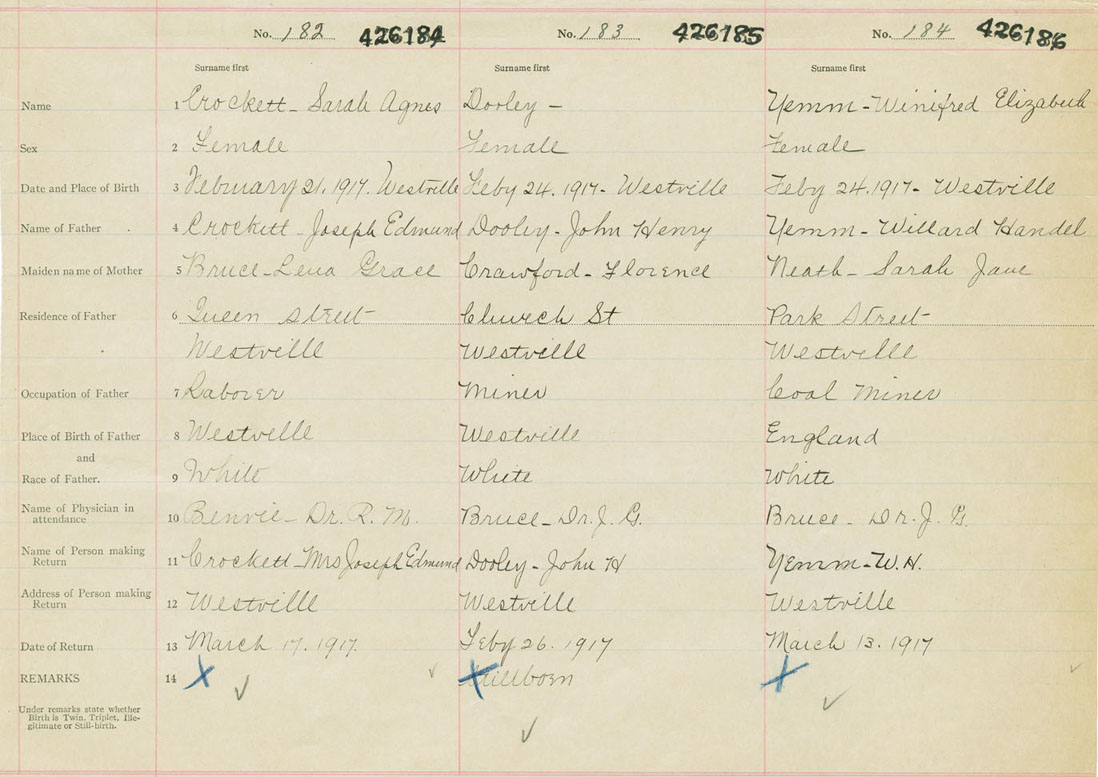 No. 182 426184 No. 183 426185 No. 184 426186
Surname first Surname first Surname first
Name 1 Crockett - Sarah Agnes Dooley - Yemm - Winifred Elizabeth
Sex 2 Female Female Female
Date and Place of Birth 3 February 21. 1917. Westville Feby 24. 1917 - Westville Feby 24. 1917 - Westville
Name of Father 4 Crockett - Joseph Edmund Dooley - John Henry Yemm - Willard Handel
Maiden name of Mother 5 Bruce - Lena Grace Crawford - Florence Neath - Sarah Jane
Residence of Father 6 Queen Street Church St Park Street
Westville Westville Westville
Occupation of Father 7 Laborer Miner Coal Miner
Place of Birth of Father 8 Westville Westville England
and
Race of Father. 9 White White White
Name of Physician in
attendance 10 Benvie - Dr. R. M. Bruce - Dr. J. G. Bruce - Dr. J. G.
Name of Person making
Return 11 Crockett - Mrs Joseph Edmund Dooley - John H Yemm - W. H.
Address of Person making
Return 12 Westville Westville Westville
Date of Return 13 March 17. 1917. Feby 26. 1917 March 13. 1917
REMARKS 14 Stillborn
Under remarks state whether
Birth is Twin, Triplet, Ille-
gitimate or Still-birth.